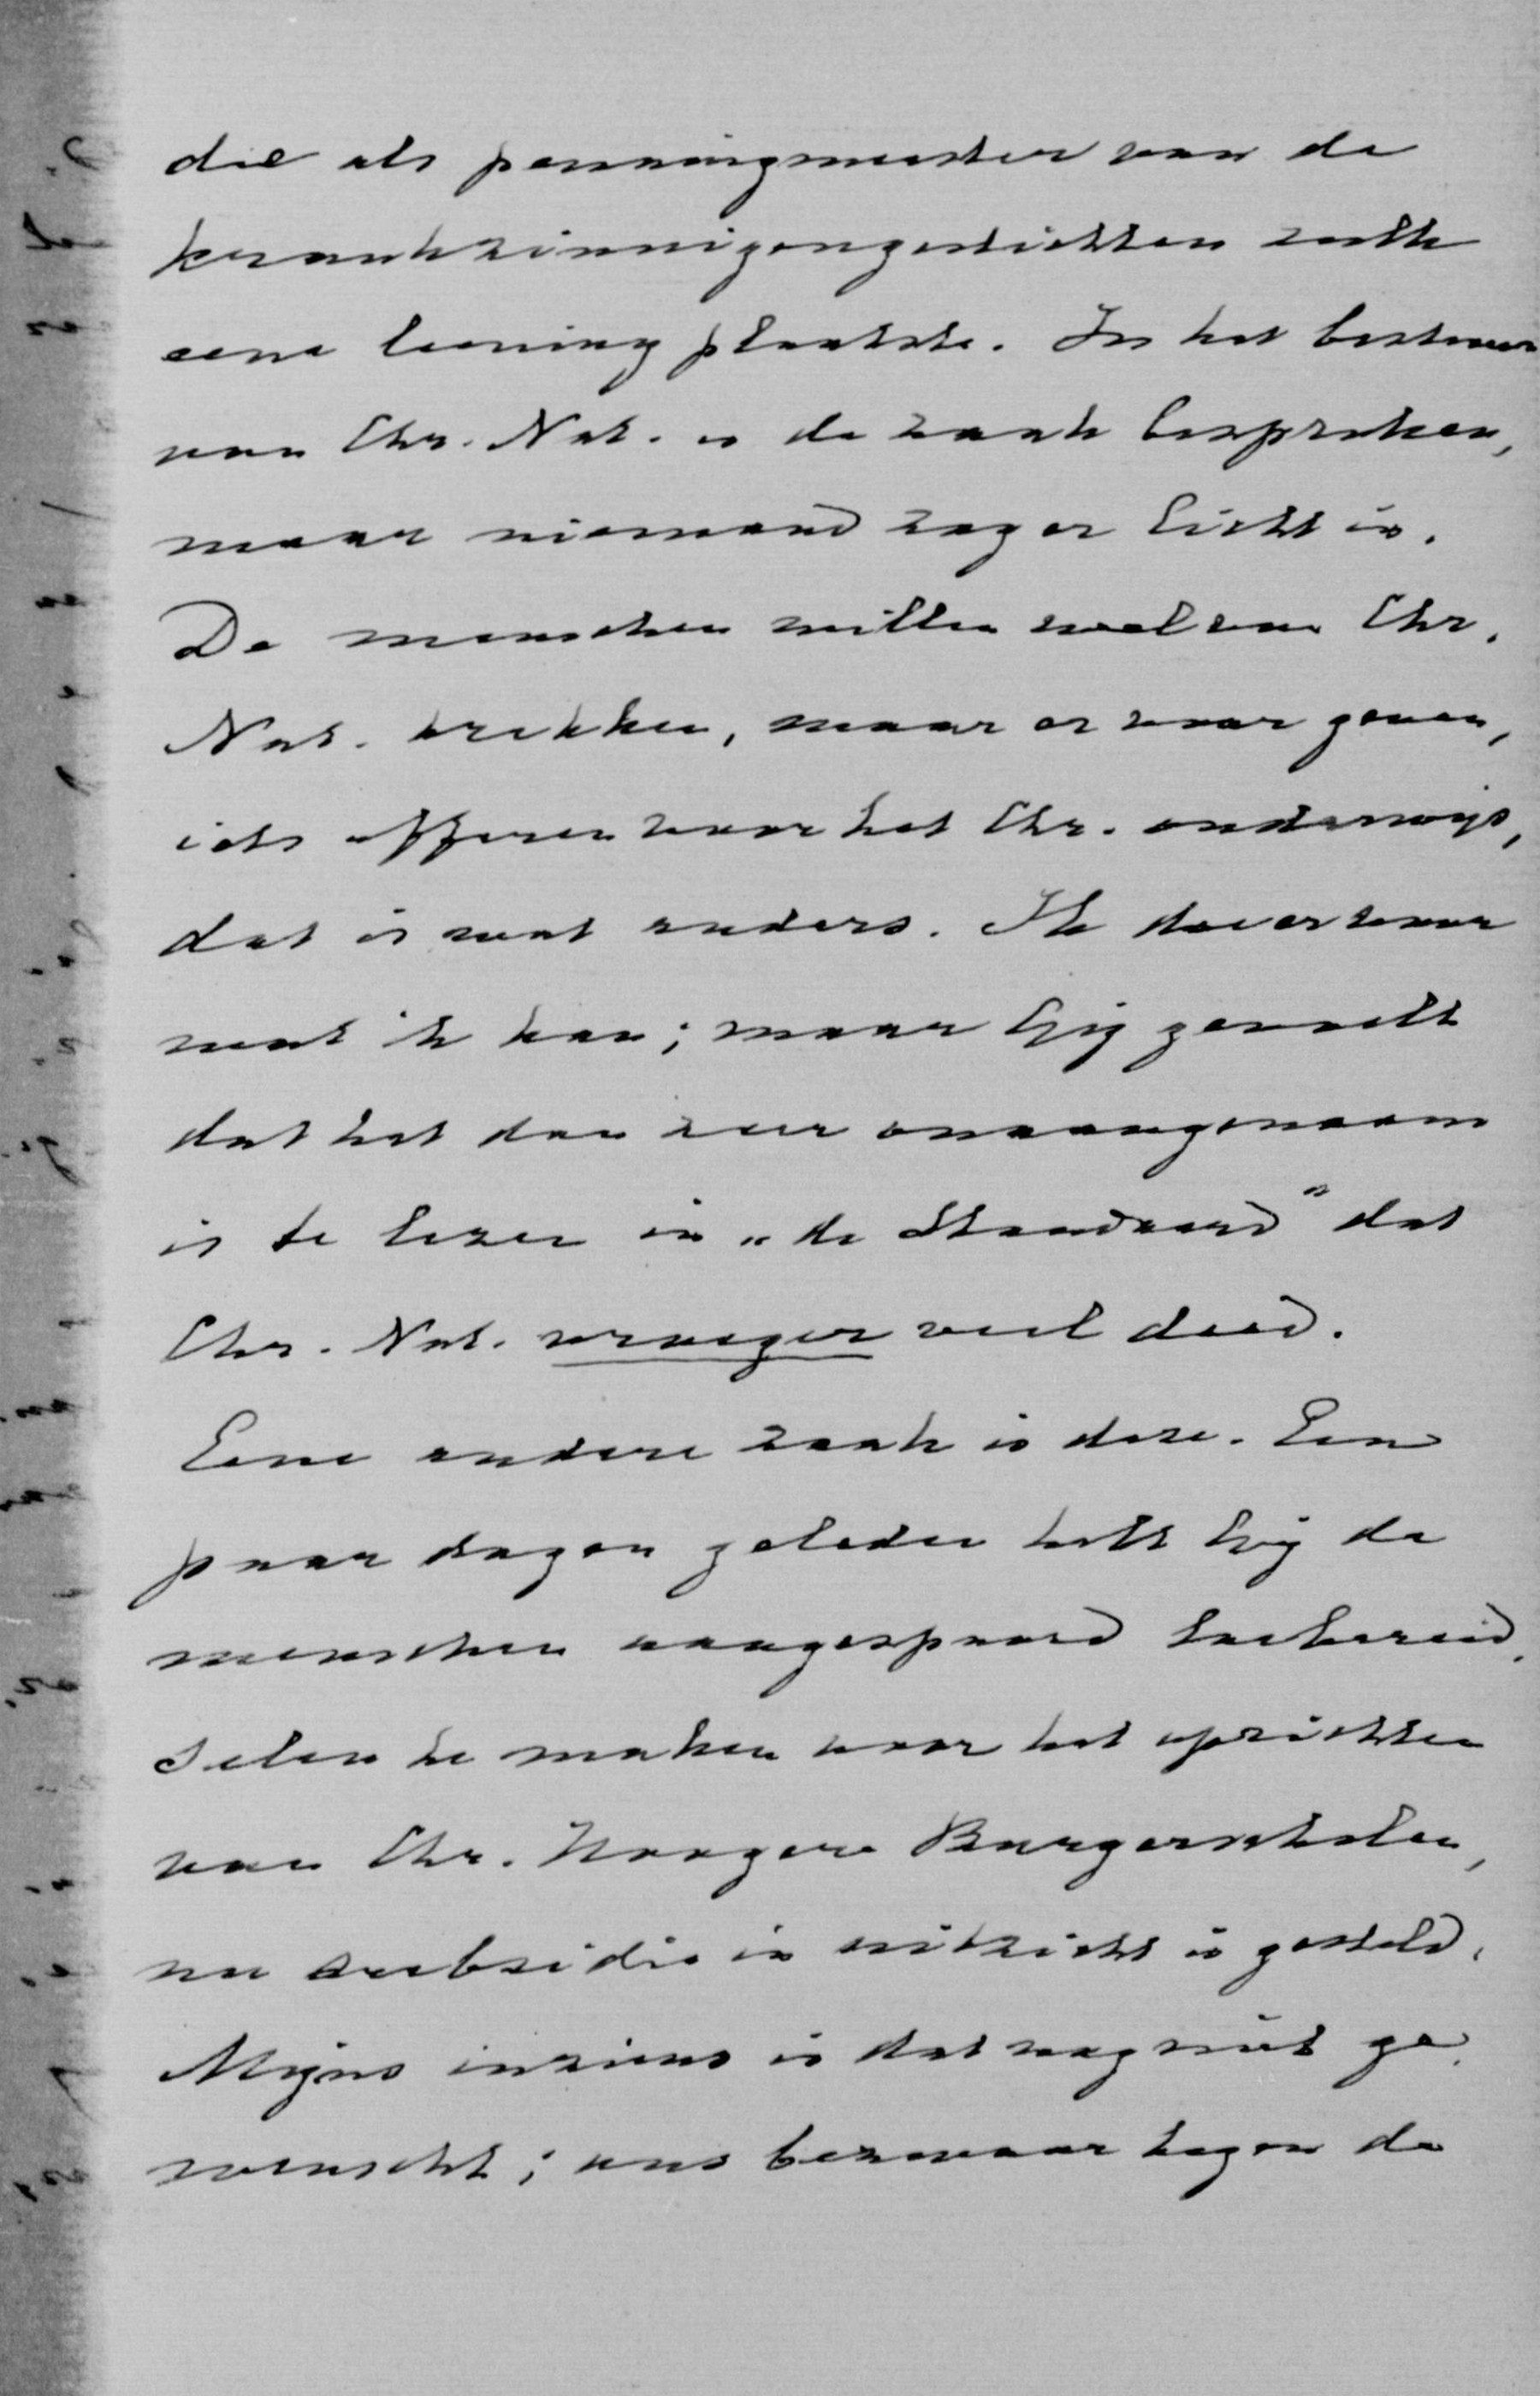 die als penningmeester van de
krankzinnigengestichten zulk
eene leening plaatste. In het bestuur
van Chr. Nat. is de zaak besproken,
maar niemand zag er licht in.
De menschen willen wel van Chr.
Nat. trekken, maar er voor geven,
iets offeren voor het Chr. onderwijs,
dat is wat anders. Ik doe er voor
wat ik kan; maar Gij gevoelt
dat het dan zeer onaangenaam
is te lezen in „de Standaard" dat
Chr. Nat. vroeger veel deed.
Eene andere zaak is deze. Een
paar dagen geleden hebt Gij de
menschen aangespoord toebereid.
selen te maken voor het oprichten
van Chr. Hoogere Burgerscholen,
nu subsidie in uitzicht is gesteld.
Mijns inziens is dat nog niet ge.
wenscht; ons bezwaar tegen de